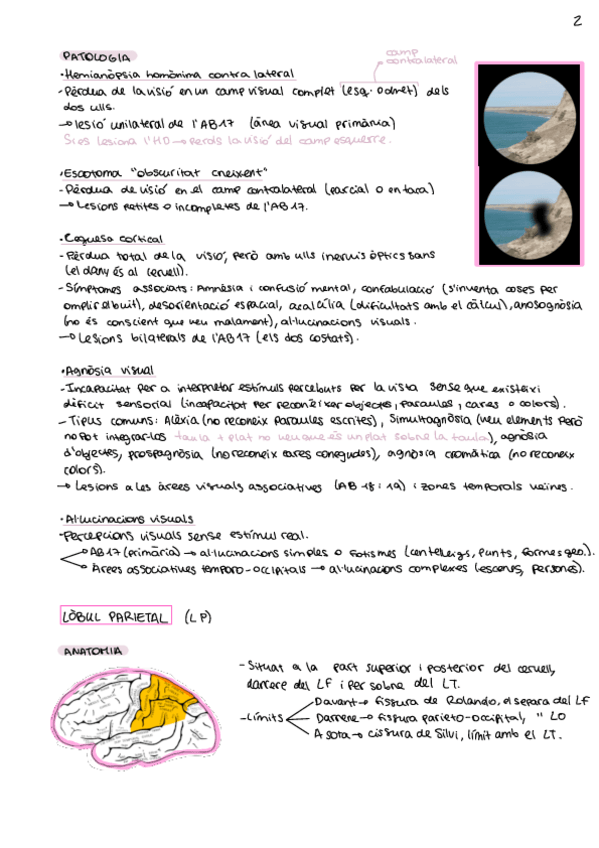 2
PATOLOGIA
camp
contralateral
·Hemianòpsia homònima contralateral
-Pèrdua de la visió en un camp visual complet (esq. o dret) dels
dos ulls.
→ lesió unilateral de l'AB17 (àrea visual primària)
Si es lesiona l'HD → perds la visió del camp esquerre.
·Escotoma "obscuritat creixent"
-Pèrdua de visió en el camp contralateral (parcial o en taca)
→ Lesions petites o incompletes de l'AB17.
·Ceguesa cortical
-Pèrdua total de la visió, però amb ulls i nervis òptics sans
(el dany és al cervell).
-Símptomes associats: Amnèsia i confusió mental, confabulació (s'inventa coses per
omplir el buit), desorientació espacial, acalcúlia (dificultats amb el càlcul), anosognòsia
(no és conscient que veu malament), al·lucinacions visuals.
→ Lesions bilaterals de l'AB17 (els dos costats).
·Agnòsia visual
-Incapacitat per a interpretar estímuls percebuts per la vista sense que existeixi
dèficit sensorial (incapacitat per reconèixer objectes, paraules, cares o colors).
-Tipus comuns: Alèxia (no reconeix paraules escrites), Simultagnòsia (veu elements però
no pot integrar-los taula + plat no veu que és un plat sobre la taula), agnòsia
d'objectes, prospagnòsia (no reconeix cares conegudes), agnòsia cromàtica (no reconeix
colors).
→ Lesions a les àrees visuals associatives (AB 18 i 19) i zones temporals veïnes.
·Al·lucinacions visuals
-Percepcions visuals sense estímul real.
AB17 (primària) → al·lucinacions simples o fotismes (centelleigs, punts, formes geo.).
Àrees associatives temporo-occipitals → al·lucinacions complexes (escenes, persones).
LÒBUL PARIETAL (LP)
ANATOMIA
-Situat a la part superior i posterior del cervell,
darrere del LF i per sobre del LT.
-Límits
Davant → fissura de Rolando, el separa del LF
Darrere → fissura parieto-occipital, " LO
A sota → cissura de Silvi, límit amb el LT.